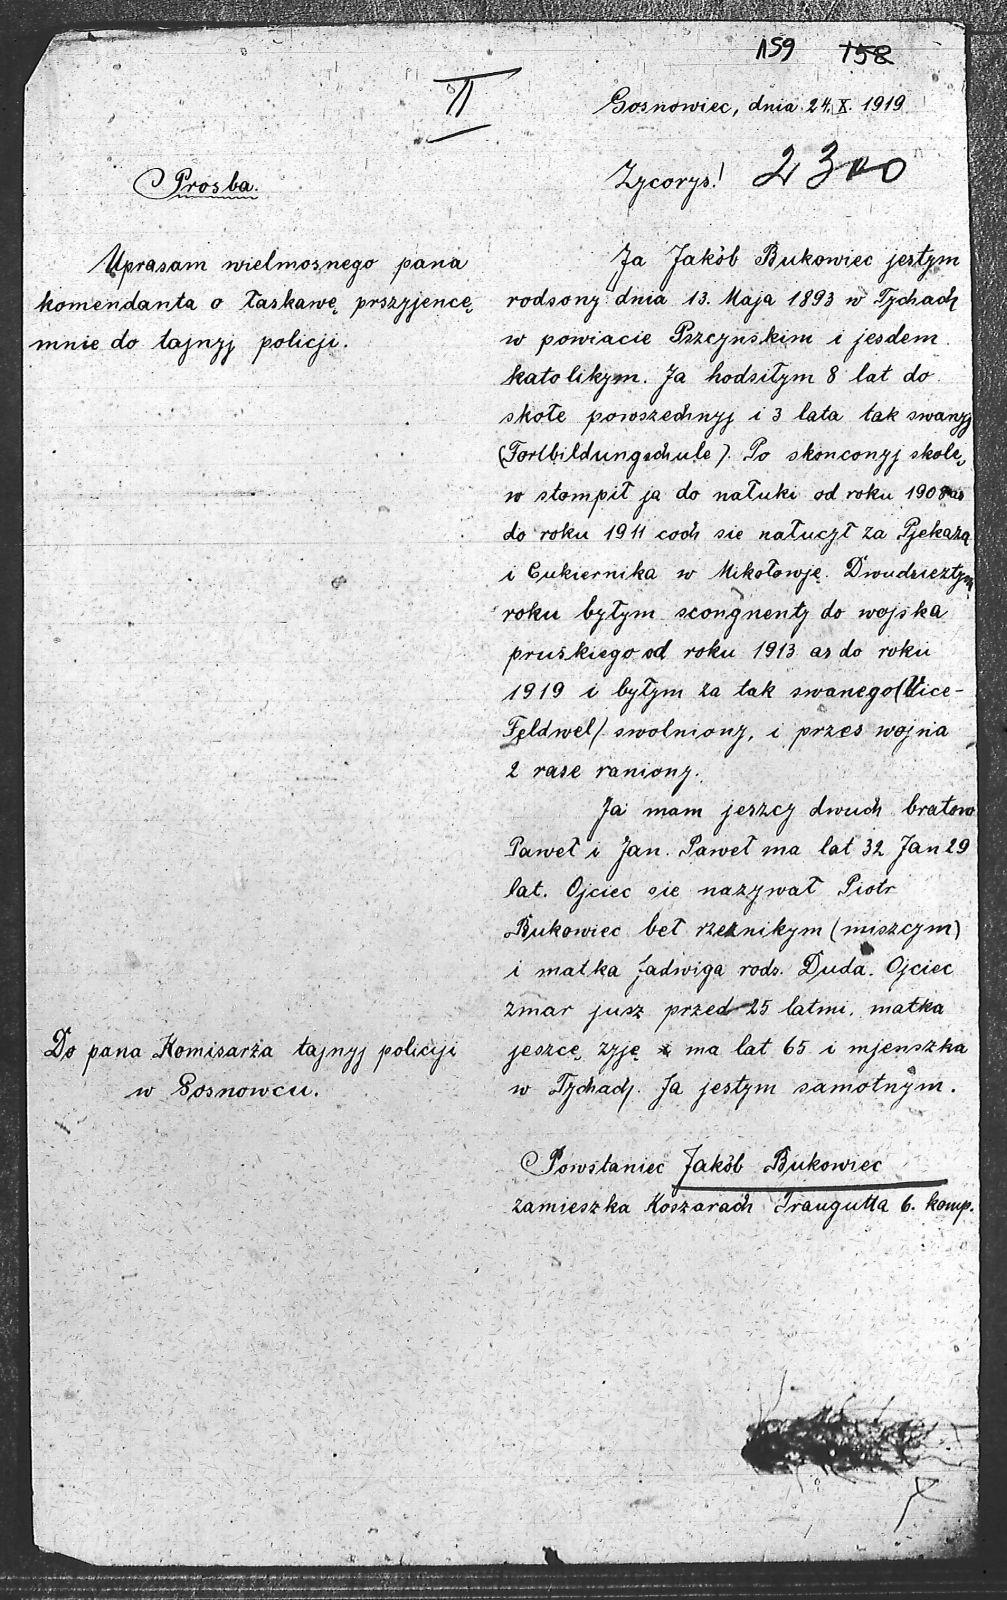 159 158
II
Sosnowiec, dnia 24. X. 1919
Prosba.
Zycorys! 2300
Uprasam wielmosnego pana
komendanta o łaskawę prszyjencę
mnie do tajnyj policji.
Do pana Komisarża tajnyj policiji
w Sosnowcu.
Ja Jakób Bukowiec jestym
rodsony dnia 13. Maja 1893 w Tychach
w powiacie Pszczynskim i jesdem
katolikym. Ja hodsiłym 8 lat do
skołe powszechnyj i 3 lata tak swanyj
(Fortbildungschule). Po skonconyj skole,
w stompił ja do nałuki od roku 1908 as
do roku 1911 coch sie nałuczł za Pjekaża
i Cukiernika w Mikołowję. Dwudzieztym
roku byłym scongnenty do wojska
pruskiego od roku 1913 as do roku
1919 i byłym za tak swanego (Vice-
Feldwel) swolniony, i przes wojna
2 rase raniony.
Ja mam jeszcy dwuch bratow
Paweł i Jan. Paweł ma lat 32 Jan 29
lat. Ojciec sie nazywał Piotr
Bukowiec beł rzeznikym (miszcym)
i matka Jadwiga rods. Duda. Ojciec
zmar jusz przed 25 latmi, matka
jeszcę zyję ma lat 65 i mjenszka
w Tychach. Ja jestym samotnym.
Powstaniec Jakób Bukowiec
zamieszka Koszarach Traugutta 6. komp.